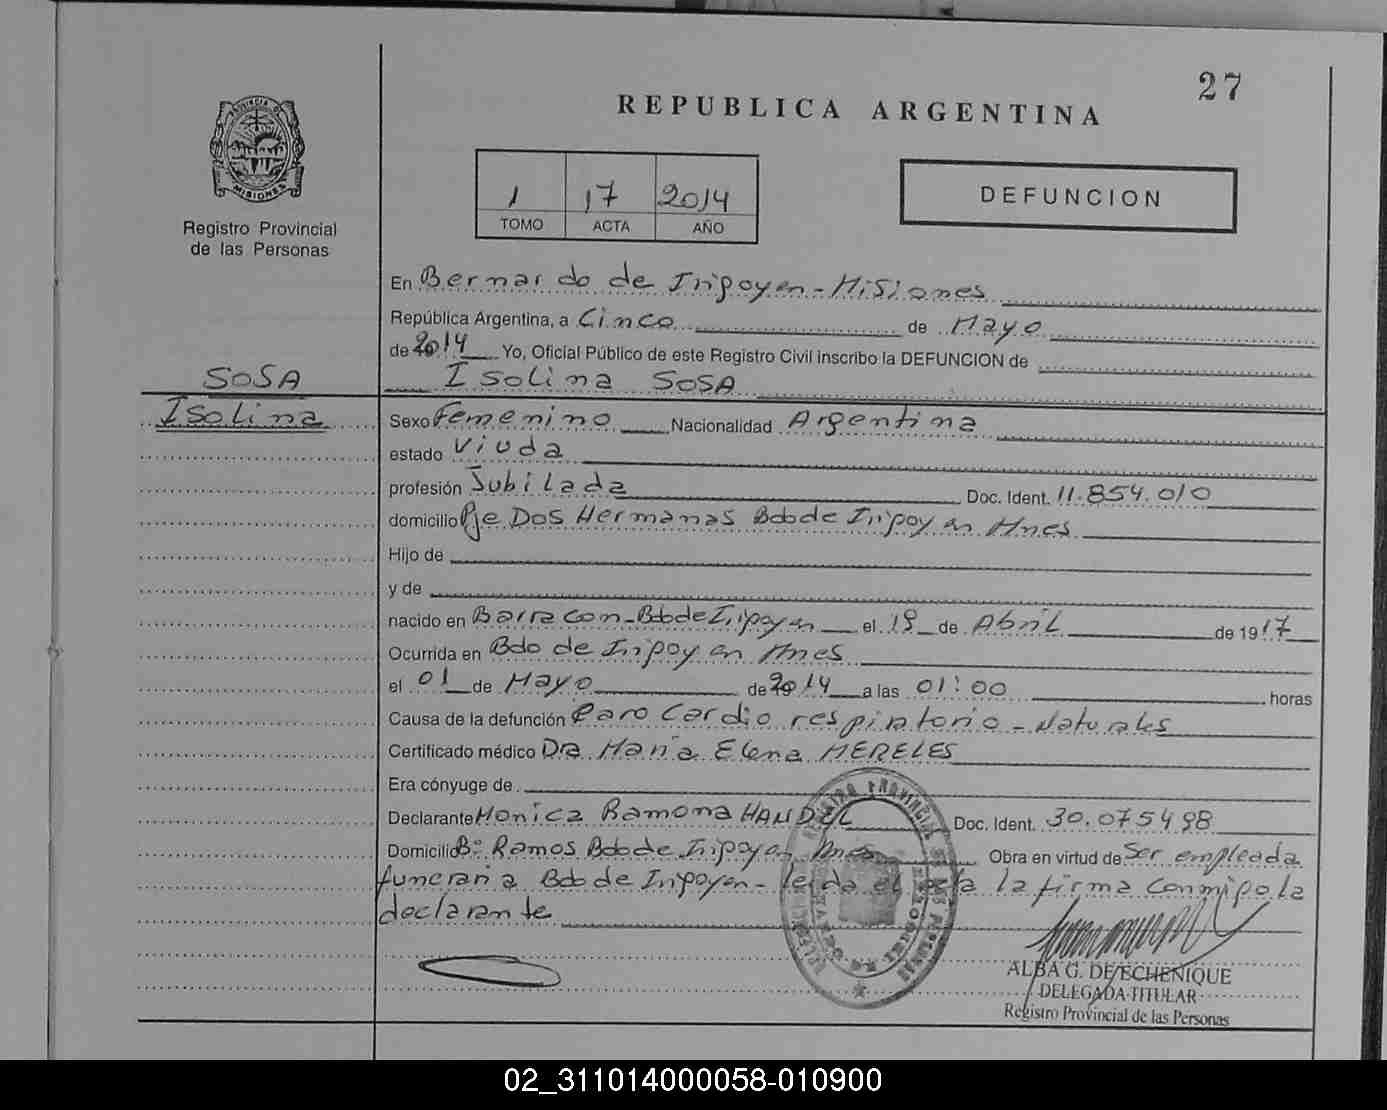 27
REPUBLICA ARGENTINA
PROVINCIA DE
MISIONES
Registro Provincial
de las Personas
1 17 2014
TOMO ACTA AÑO
DEFUNCION
En Bernardo de Irigoyen - Misiones
República Argentina, a Cinco de Mayo
de 2014 Yo, Oficial Público de este Registro Civil inscribo la DEFUNCION de
SOSA
Isolina SOSA
Isolina
Sexo Femenino Nacionalidad Argentina
estado Viuda
profesión Jubilada Doc. Ident. 11.854.010
domicilio Pje Dos Hermanas Bdo de Irigoyen Mnes
Hijo de
y de
nacido en Barracon - Bdo de Irigoyen el 19 de Abril de 1917
Ocurrida en Bdo de Irigoyen Mnes
el 01 de Mayo de 2014 a las 01:00 horas
Causa de la defunción Paro Cardio respiratorio - Naturales
Certificado médico Dra Maria Elena MERELES
Era cónyuge de
Declarante Monica Ramona HANDEL Doc. Ident. 30.075498
Domicilio Bº Ramos Bdo de Irigoyen Mnes Obra en virtud de Ser empleada
funeraria Bdo de Irigoyen - leida el acta la firma conmigo la
declarante
REGISTRO PROVINCIAL DE LAS PERSONAS
ALBA G. DE ECHENIQUE
DELEGADA TITULAR
Registro Provincial de las Personas
02_311014000058-010900